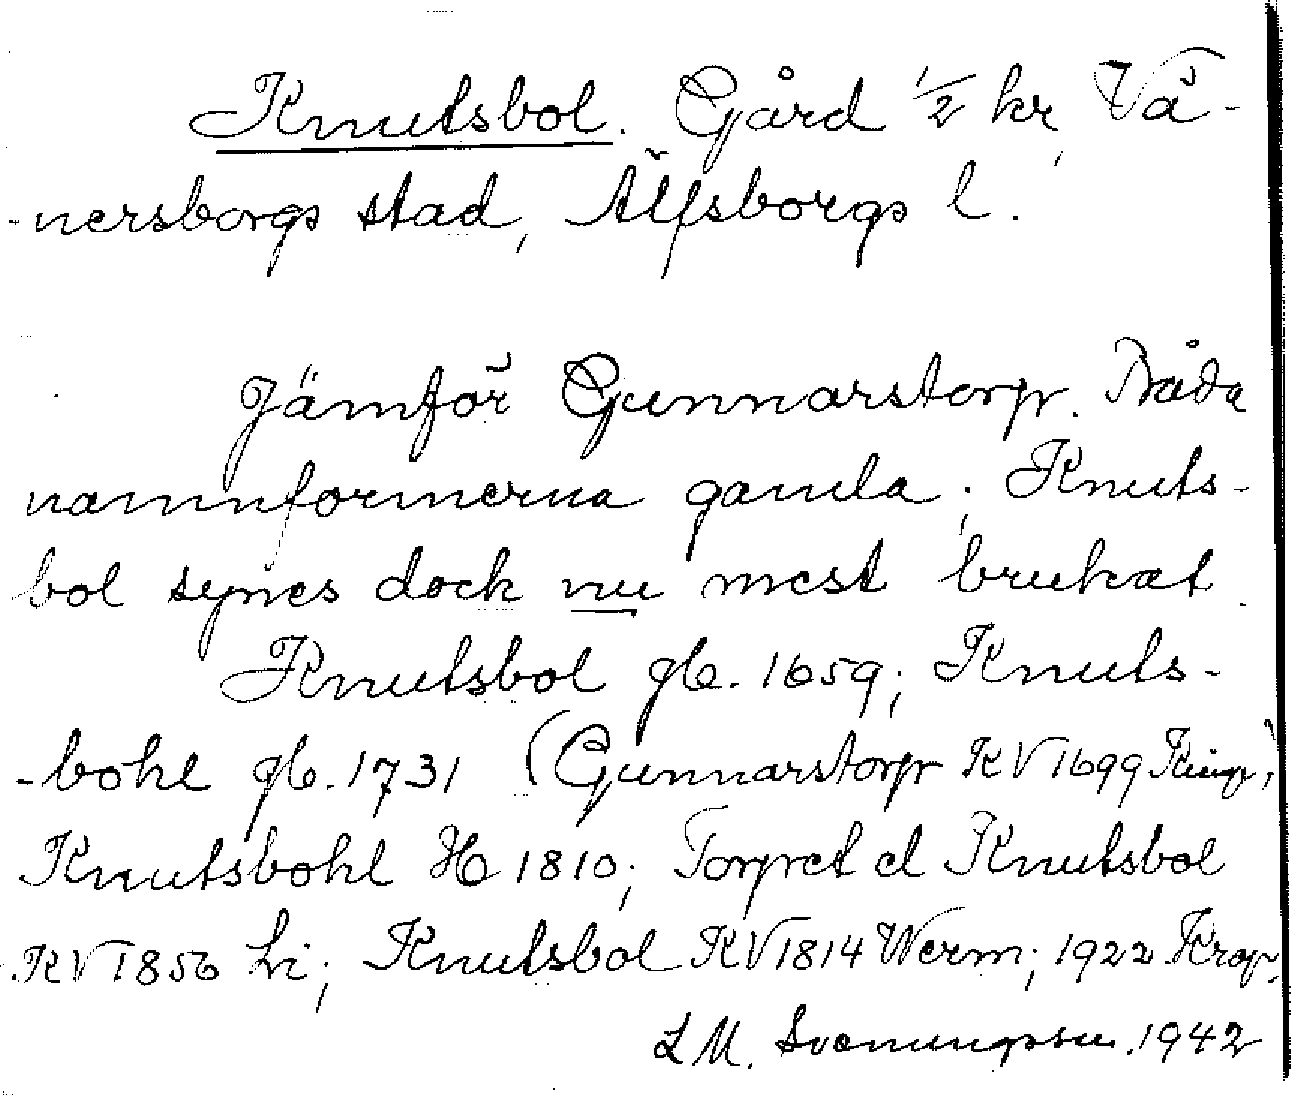 Knutsbol. Gård 1/2 kr, Vä-
-nersborgs stad, Älfsborgs l.
Jämför Gunnarstorp. Båda
namnformerna gamla; Knuts-
bol synes dock nu mest brukat.
Knutsbol jb. 1659; Knuts-
-bohl jb. 1731 (Gunnarstorp KV 1699
Knutsbohl H 1810; Torpet el Knutsbol
KV 1856 Li; Knutsbol KV 1814 Werm; 1922 Krop.
L M. Svenungsson. 1942